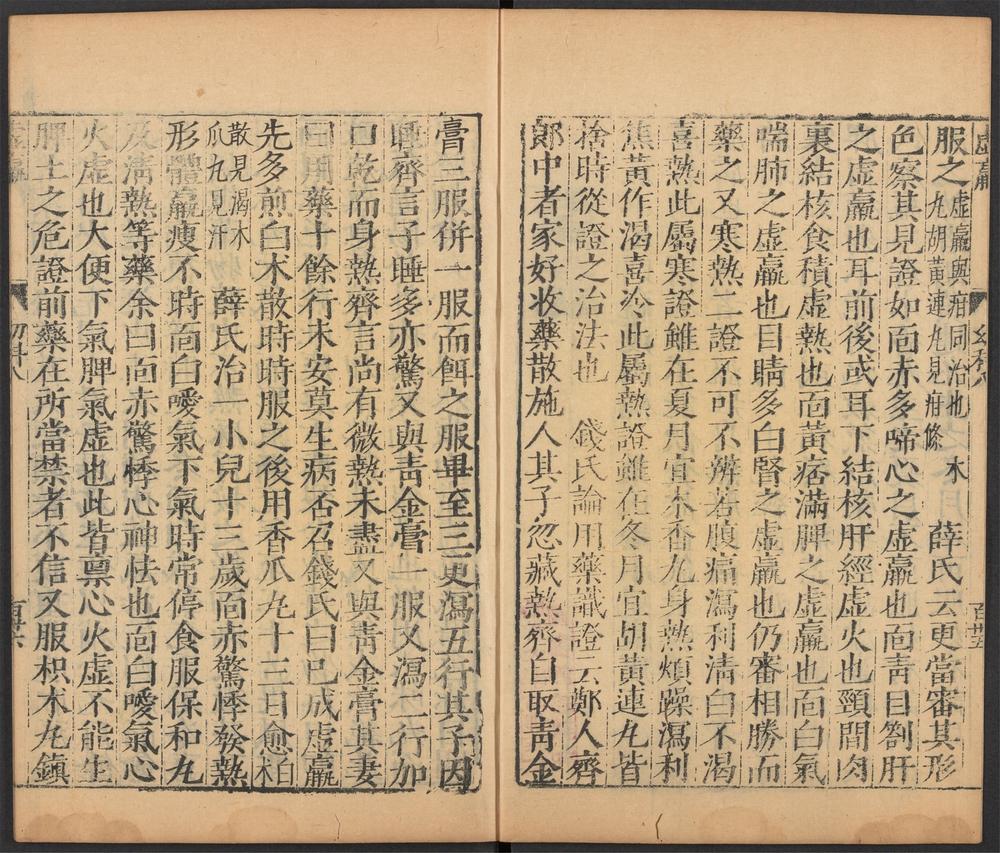 虛羸 幼科八 百廿五
服之 虛羸與疳同治也 木 丸胡黃連丸見疳條 薛氏云更當審其形
色察其見證如面赤多啼心之虛羸也面青目劄肝
之虛羸也耳前後或耳下結核肝經虛火也頸間肉
裏結核食積虛熱也面黃痞滿脾之虛羸也面白氣
喘肺之虛羸也目睛多白腎之虛羸也仍審相勝而
藥之又寒熱二證不可不辨若腹痛瀉利清白不渴
喜熱此屬寒證雖在夏月宜木香丸身熱煩躁瀉利
焦黃作渴喜冷此屬熱證雖在冬月宜胡黃連丸皆
捨時從證之治法也 錢氏論用藥識證云鄭人齊
郎中者家好收藥散施人其子忽藏熱齊自取青金
膏三服併一服而餌之服畢至三更瀉五行其子因
睡齊言子睡多亦驚又與青金膏一服又瀉二行加
口乾而身熱齊言尚有微熱未盡又與青金膏其妻
曰用藥十餘行未安莫生病否召錢氏曰已成虛羸
先多煎白术散時時服之後用香瓜丸十三日愈柏
散見渴木 瓜丸見汗 薛氏治一小兒十三歲面赤驚悸發熱
形體羸瘦不時面白噯氣下氣時常停食服保和丸
及清熱等藥余曰面赤驚悸心神怯也面白噯氣心
火虛也大便下氣脾氣虛也此皆稟心火虛不能生
脾土之危證前藥在所當禁者不信又服枳术丸鎮
虛羸 幼科八 百廿六